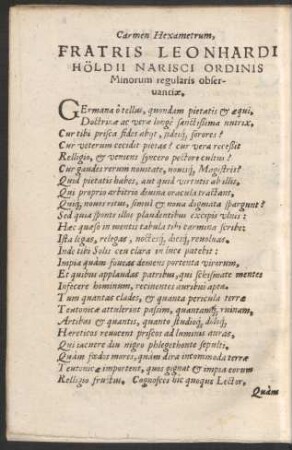 Carmen Hexametrum,
FRATRIS LEONHARDI
HÖLDII NARISCI ORDINIS
Minorum regularis obser-
uantiæ.
GErmana ô tellus, quondam pietatis & æqui,
Doctrinæ ac veræ longè sanctissima nutrix.
Cur tibi prisca fides abijt, pdesq́, sorores?
Cur veterum cecidit pietas? cur vera recessit
Relligio, & veniens syncero pectore cultus?
Cur gaudes rerum nouitate, nouisq́, Magistris?
Quid pietatis habes, aut quid virtutis ab illis,
Qui proprio arbitrio diuina oracula tractant,
Quiq́, nouos ritus, simul & noua dogmata spargunt?
Sed quia sponte illos plaudentibus excipis vlnis:
Hæc quæso in mentis tabula tibi carmina scribi:
Ista legas, relegas, noctesq́, diesq́, reuoluas.
Inde tibi Solis ceu clara in luce patebit:
Impia quàm foueas demens portenta virorum,
Et quibus applaudas patribus, qui schismate mentes
Infecere hominum, recinentes auribus apta.
Tum quantas clades, & quanta pericula terræ
Teutonicæ attulerint passim, quantamq́, ruinam.
Artibus & quantis, quanto studioq́, doliq́,
Hereticos reuocent priscos ad luminis auras,
Qui iacuere diu nigro phlegethonte sepulti.
Quàm fœdos mores, quàm dira incommoda terræ
Teutonicæ importent, quos gignat & impia eorum
Relligio fructus. Cognosces hic quoque Lector.
Quàm